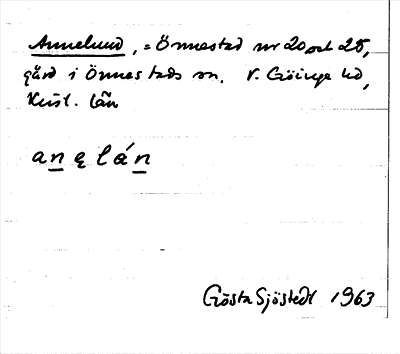 Annelund, = Önnestad nr 20 och 25,
gård i Önnestads sn. V. Göinge hd,
Krist. län
a n ę l á n
Gösta Sjöstedt 1963